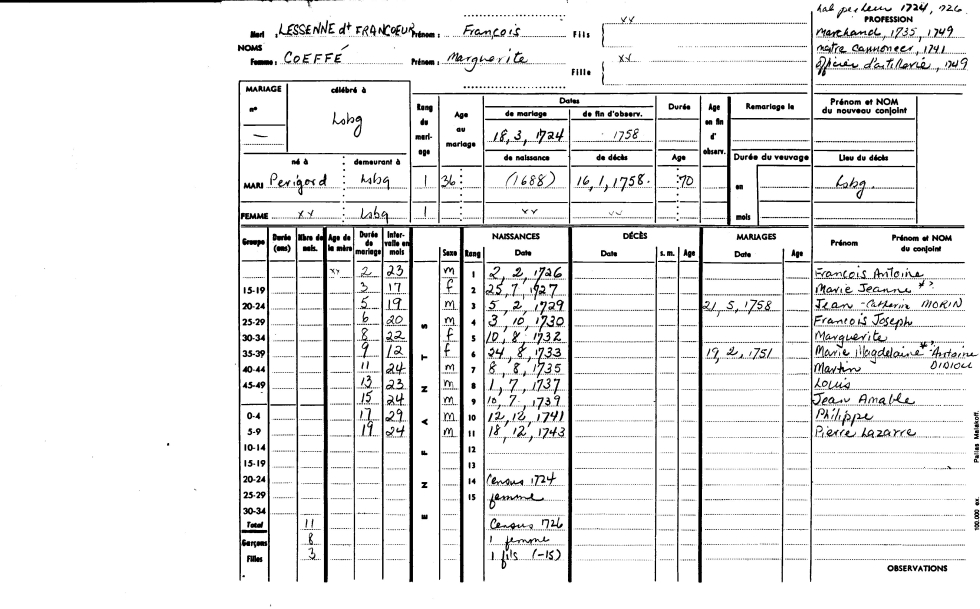 hab pecheur 1724, 726
PROFESSION
Marchand, 1735, 1749
maitre cannoneer, 1741
Officier d'artillerie, 1749
Mari : LESSENNE dt FRANCOEUR Prénom : François Fils xx
NOMS
Femme : COEFFÉ Prénom : Marguerite Fille xx
MARIAGE célébré à
n° — Lsbg
Rang du mariage
Age au mariage
Dates
de mariage de fin d'observ.
18, 3, 1724 1758
de naissance de décès
Durée
Age
Age en fin d'observ.
Remariage le
Durée du veuvage
en
mois
Prénom et NOM du nouveau conjoint
Lieu du décès
né à demeurant à
MARI Perigord Lsbg 1 36 (1688) 16, 1, 1758. 70 Lsbg.
FEMME xx Lsbg 1 xx xx
Groupe Durée (ans) Nbre de nais. Age de la mère Durée de mariage Intervalle en mois
ENFANTS
Sexe Rang
NAISSANCES Date
DÉCÈS Date s. m. Age
MARIAGES Date Age
Prénom Prénom et NOM du conjoint
xx 2 23 m 1 2, 2, 1726 François Antoine
15-19 3 17 f 2 25, 7, 1727 Marie Jeanne *>
20-24 5 19 m 3 5, 2, 1729 21, 5, 1758 Jean - Catherine MORIN
25-29 6 20 m 4 3, 10, 1730 Francois Joseph
30-34 8 22 f 5 10, 8, 1732 Marguerite
35-39 9 12 f 6 24, 8, 1733 19, 2, 1751 Marie Magdelaine *> Antoine DIDION
40-44 11 24 m 7 8, 8, 1735 Martin
45-49 13 23 m 8 1, 7, 1737 Louis
15 24 m 9 10, 7, 1739 Jean Amable
0-4 17 29 m 10 12, 12, 1741 Philippe
5-9 19 24 m 11 18, 12, 1743 Pierre Lazarre
10-14 12
15-19 13
20-24 14 Census 1724
25-29 15 femme
30-34
Total 11 Census 1726
Garçons 8 1 femme
Filles 3 1 fils (-15)
OBSERVATIONS
100.000 ex. Pallas Malakoff.